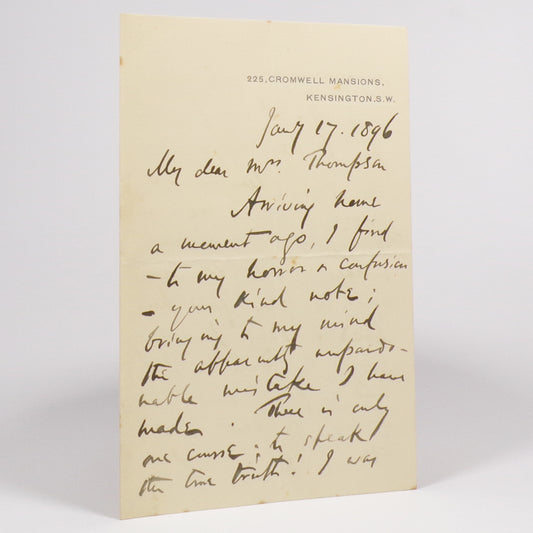 225, CROMWELL MANSIONS,
KENSINGTON. S.W.
Jany 17. 1896
My dear Mrs. Thompson
Arriving home
a moment ago, I find
- to my horror & confusion
- your kind note;
bringing to my mind
the apparently unpardo-
nable mistake I have
made. There is only
one course; to speak
the true truth! I was